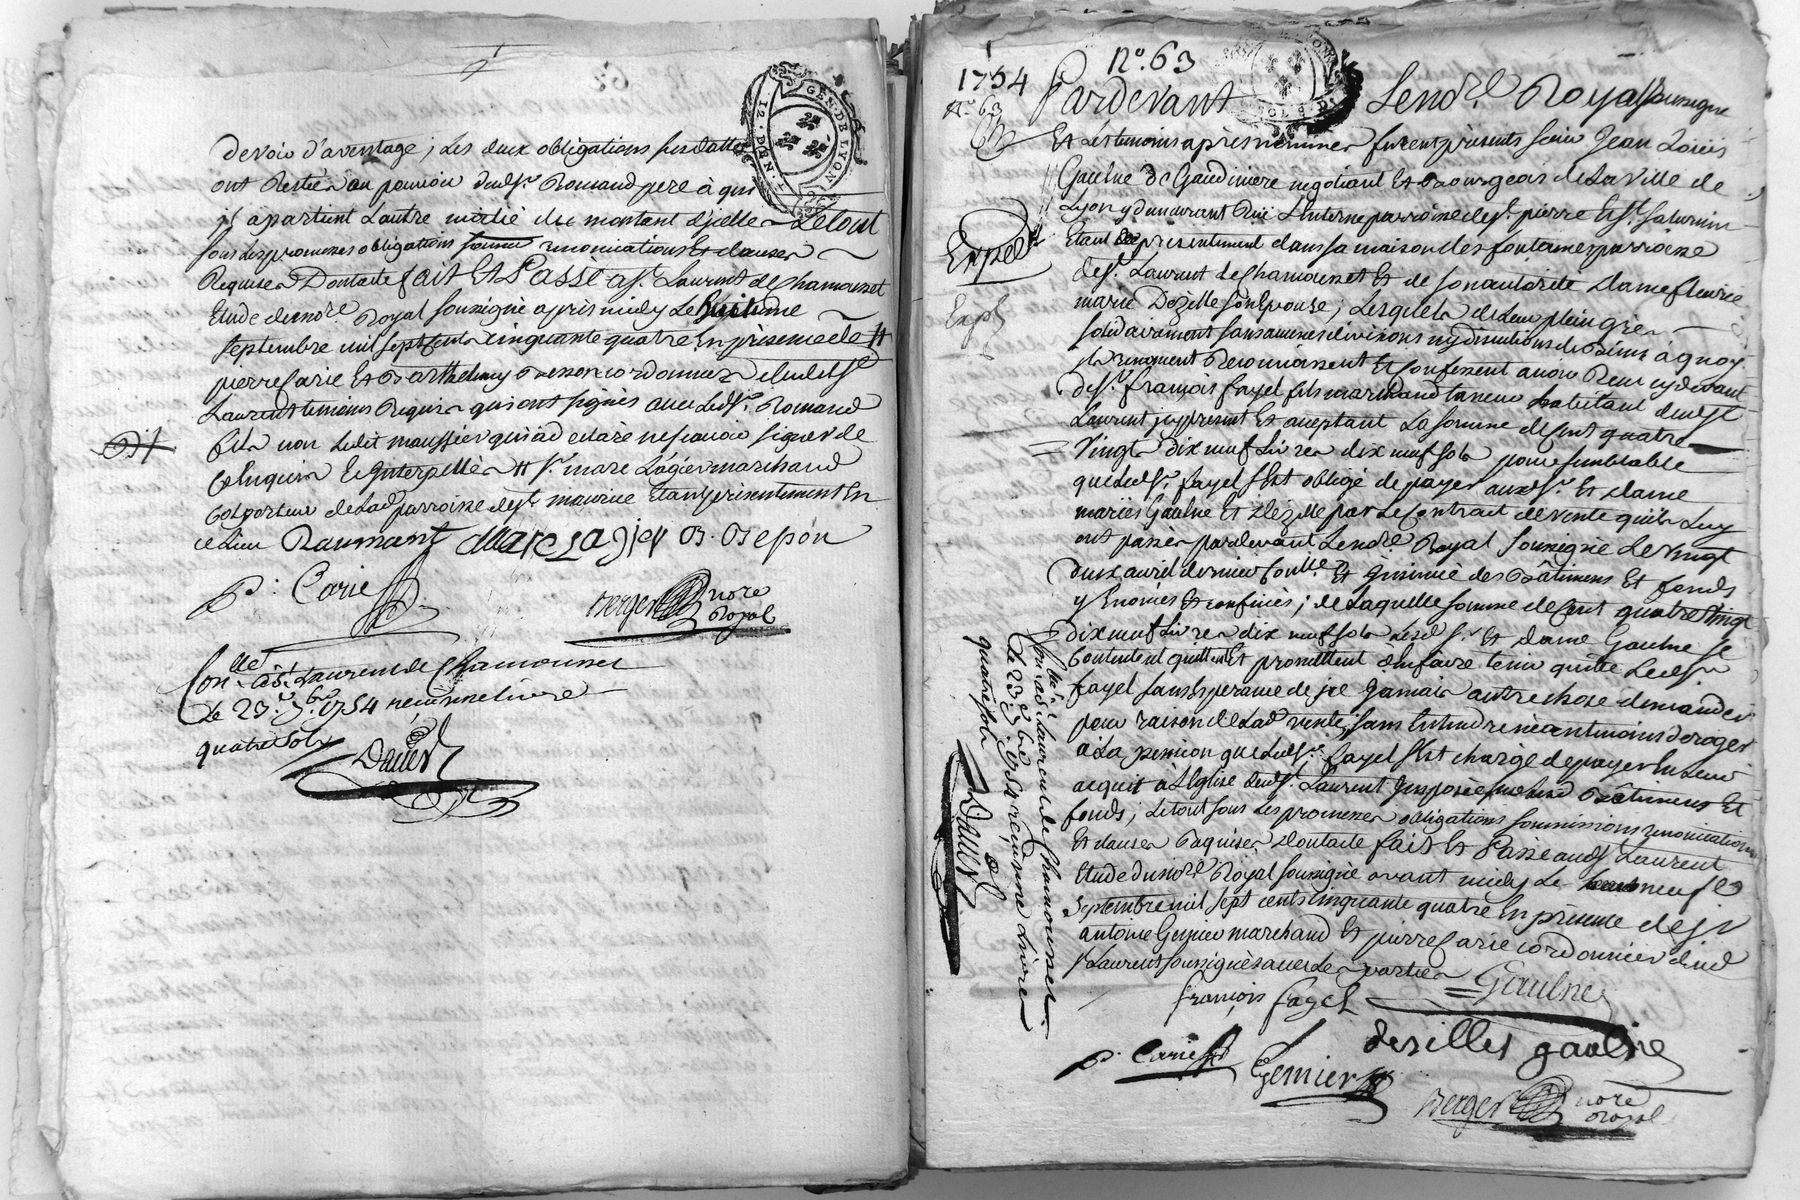 GEN. DE LYON
12. DEN. T.
devoir d'aventage ; les deux obligations susdattes
ont Restées au pouvoir dudsr. Romand pere à qui
il apartient Lautre moitié du montant d'jcelles Letout
sous les promesses obligations renonciations Et clauses
Requises Dontacte fait Et Passé a st. Laurent de Chamousset
Etude dunore. Royal soussigné apres midy Le huitieme
septembre mil sept cents cinquante quatre En presence de #
pierre Carie Et Barthelemy cordonniers dudit st
Laurent temoins Requis qui ont signés avec Ledsr. Romand
fils non Ledit maussier qui a declaré ne scavoir signer de
ce Enquis Et Interpellé # sr. marc Lagier marchand
colporteur de Lad parroisse de st maurice Etant presentement En
ce Lieu Raumant Marc Lagier B. Bepon
P. Carie
Berger nore
Royal
Con.lle à st. Laurent de Chamousset
Le 23e. 7bre. 1754 reçu une livre
quatre sols
N°. 63
1754 Pardevant Lenore. Royal soussigné
N°. 63
Et Les temoins après nommés furent presents sieur Jean Louis
Gaulne De Gaudiniere negotiant Et Bourgeois de La ville de
Lyon y demeurant Ruë Luiterne parroisse de st. pierre Et st. saturnin
Etant presentement dans sa maison des fontaines parroisse
Exped
de st. Laurent de Chamousset Et de son autorité dame fleurie
Exp
marie Dezille son Epouse ; Lesquels de Leur plein gré
solidairement sans aucunes divisions ny discutions de Biens à quoy
ils renoncent Reconnoissent Et Confessent avoir Receu cydevant
de sr. françois fayel fils marchand taneur habitant dudit st
Laurent jcy present Et aceptant La somme de Cent quatre
Vingts dix neuf Livres dix neuf sols pour semblable
que Ledsr. fayel s'est obligé de payer auxdsr. Et dame
mariés Gaulne Et Dezille par Le Contrat de vente quils Luy
ont passés pardevant Lenore. Royal soussigné Le vingt
deux avril dernier Conllé. Et jnsinué des Bâtimens Et fonds
y Enoncés Et confinés ; de Laquelle somme de Cent quatre Vingt
dix neuf Livres dix neuf sols Lesd sr. Et dame Gaulne se
Contentent quittent Et promettent d'En faire tenir quitte Ledsr
fayel sans Esperance de jce Jamais autre chose demander
pour raison de Lad vente ; sans Entendre neantmoins deroger
a La pension que Ledsr. fayel s'Est chargé de payer En Leur
acquit a L'Eglise dudst. Laurent Jmposée sur Lesd Bâtimens Et
fonds ; Letout sous Les promesses obligations soumissions renonciations
Et clauses Requises Dontacte fait Et Passé audst Laurent
Etude dunore Royal soussigné avant midy Le neuf
septembre mil sept cents cinquante quatre En presence de sr
antoine Gemier marchand Et pierre Carie cordonnier dud
st Laurent soussignés avec Les parties Gaulne
françois fayel
desilles gaulne
P. Carie Gemier
Berger nore
Royal
Con.llé à st Laurent de Chamousset
Le 23e. 7bre. 1754 reçu une Livre
quatre sols